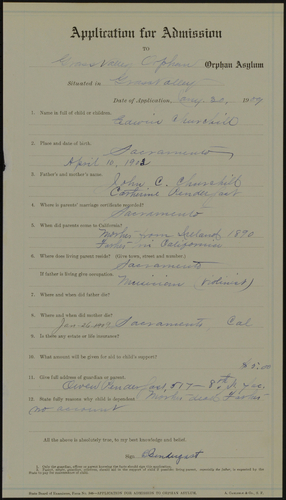 Application for Admission
TO
Grass Valley Orphan Orphan Asylum
Situated in Grass Valley
Date of Application, Aug 20, 1909
1. Name in full of child or children.
Edwin Churchill
2. Place and date of birth.
Sacramento
April 10, 1902
3. Father's and mother's name.
John C. Churchill
Catherine
4. Where is parents' marriage certificate recorded?
Sacramento
5. When did parents come to California?
Mother from Ireland, 1890
Father in California
6. Where does living parent reside? (Give town, street and number)
Sacramento
If father is living give occupation.
Musician (violinist)
7. Where and when did father die?
8. Where and when did mother die?
Sacramento Cal
9. Is there any estate or life insurance?
10. What amount will be given for aid to child's support?
11. Give full address of guardian or parent.
Owen 517 - 8th
12. State fully reasons why child is dependent. Mother dead Father
no account
All the above is absolutely true, to my best knowledge and belief.
Sign.